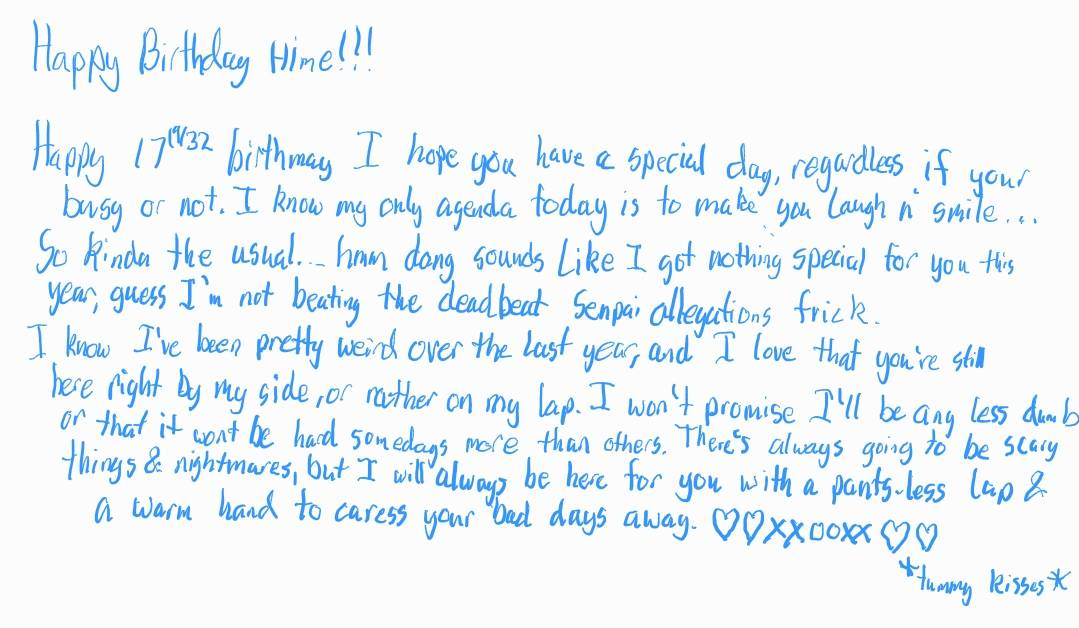 Happy Birthday Hime!!!
Happy 17 19/32 birthmay I hope you have a special day, regardless if your
busy or not. I know my only agenda today is to make you laugh n' smile...
So kinda the usual... hmm dang sounds like I got nothing special for you this
year, guess I'm not beating the deadbeat Senpai allegations frick.
I know I've been pretty weird over the last year, and I love that you're still
here right by my side, or rather on my lap. I won't promise I'll be any less dumb
or that it wont be hard somedays more than others. There's always going to be scary
things & nightmares, but I will always be here for you with a pants-less lap &
a warm hand to caress your bad days away. ♡♡xxooxx♡♡
*tummy kisses*